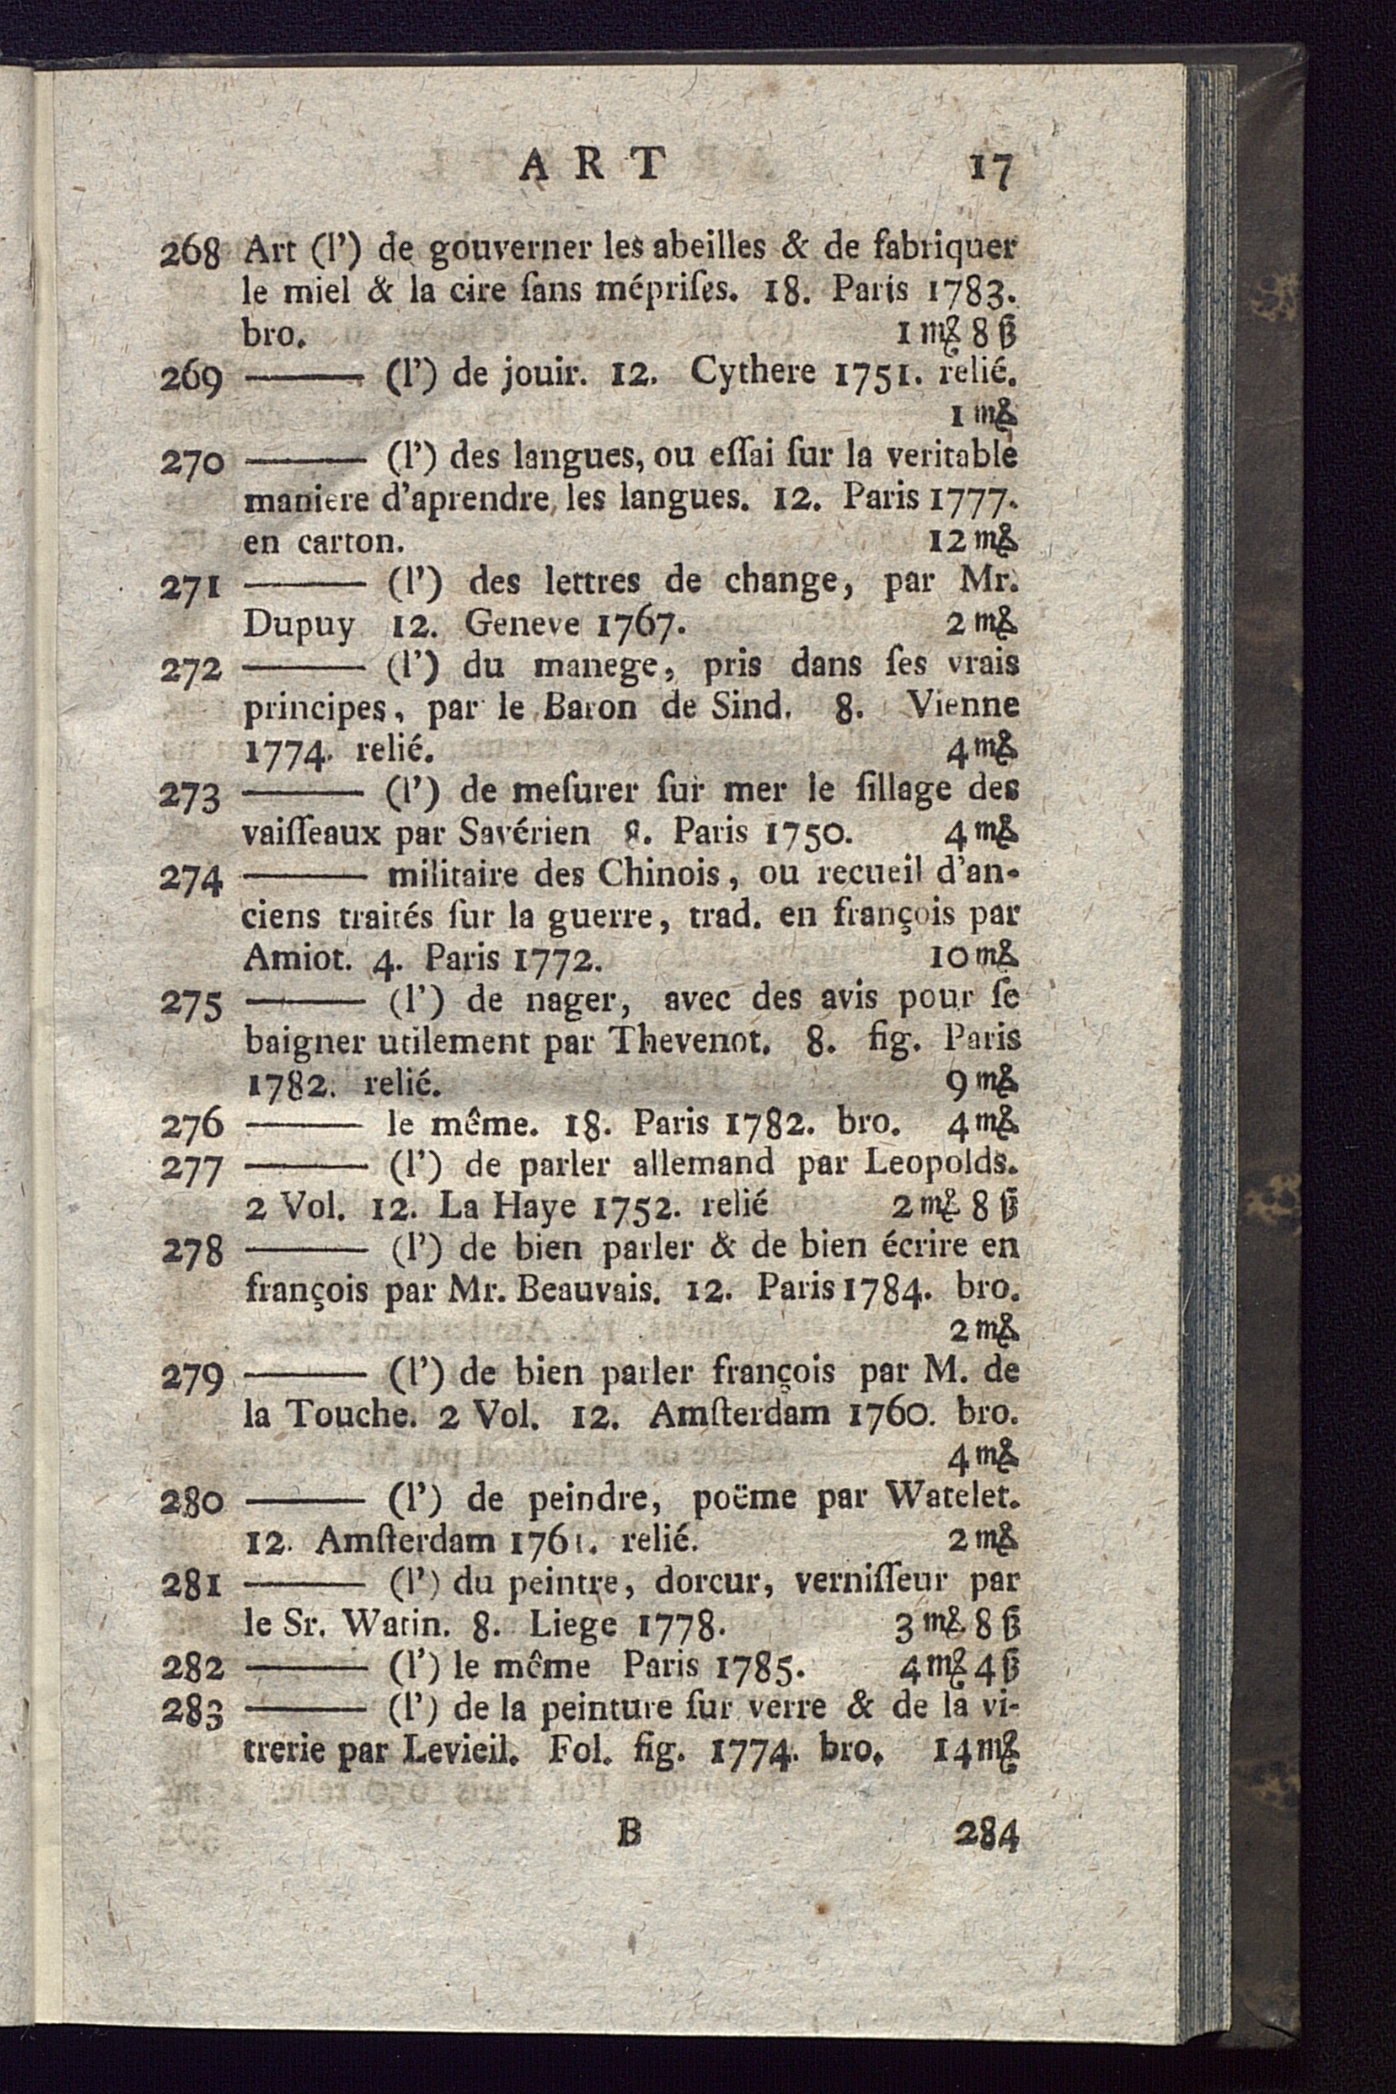 A R T 17
268 Art (l') de gouverner les abeilles & de fabriquer
le miel & la cire ſans mépriſes. 18. Paris 1783.
bro. 1 m₰ 8 ß
269 ——— (l') de jouir. 12. Cythere 1751. relié.
1 m₰
270 ——— (l') des langues, ou eſſai ſur la veritable
maniere d'aprendre les langues. 12. Paris 1777.
en carton. 12 m₰
271 ——— (l') des lettres de change, par Mr.
Dupuy 12. Geneve 1767. 2 m₰
272 ——— (l') du manege, pris dans ſes vrais
principes, par le Baron de Sind. 8. Vienne
1774. relié. 4 m₰
273 ——— (l') de meſurer ſur mer le ſillage des
vaiſſeaux par Savérien 8. Paris 1750. 4 m₰
274 ——— militaire des Chinois, ou recueil d'an-
ciens traités ſur la guerre, trad. en françois par
Amiot. 4. Paris 1772. 10 m₰
275 ——— (l') de nager, avec des avis pour ſe
baigner utilement par Thevenot. 8. fig. Paris
1782. relié. 9 m₰
276 ——— le même. 18. Paris 1782. bro. 4 m₰
277 ——— (l') de parler allemand par Leopolds.
2 Vol. 12. La Haye 1752. relié 2 m₰ 8 ß
278 ——— (l') de bien parler & de bien écrire en
françois par Mr. Beauvais. 12. Paris 1784. bro.
2 m₰
279 ——— (l') de bien parler françois par M. de
la Touche. 2 Vol. 12. Amſterdam 1760. bro.
4 m₰
280 ——— (l') de peindre, poëme par Watelet.
12. Amſterdam 1761. relié. 2 m₰
281 ——— (l') du peintre, dorcur, verniſſeur par
le Sr. Watin. 8. Liege 1778. 3 m₰ 8 ß
282 ——— (l') le même Paris 1785. 4 m₰ 4 ß
283 ——— (l') de la peinture ſur verre & de la vi-
trerie par Levieil. Fol. fig. 1774. bro. 14 m₰
B 284